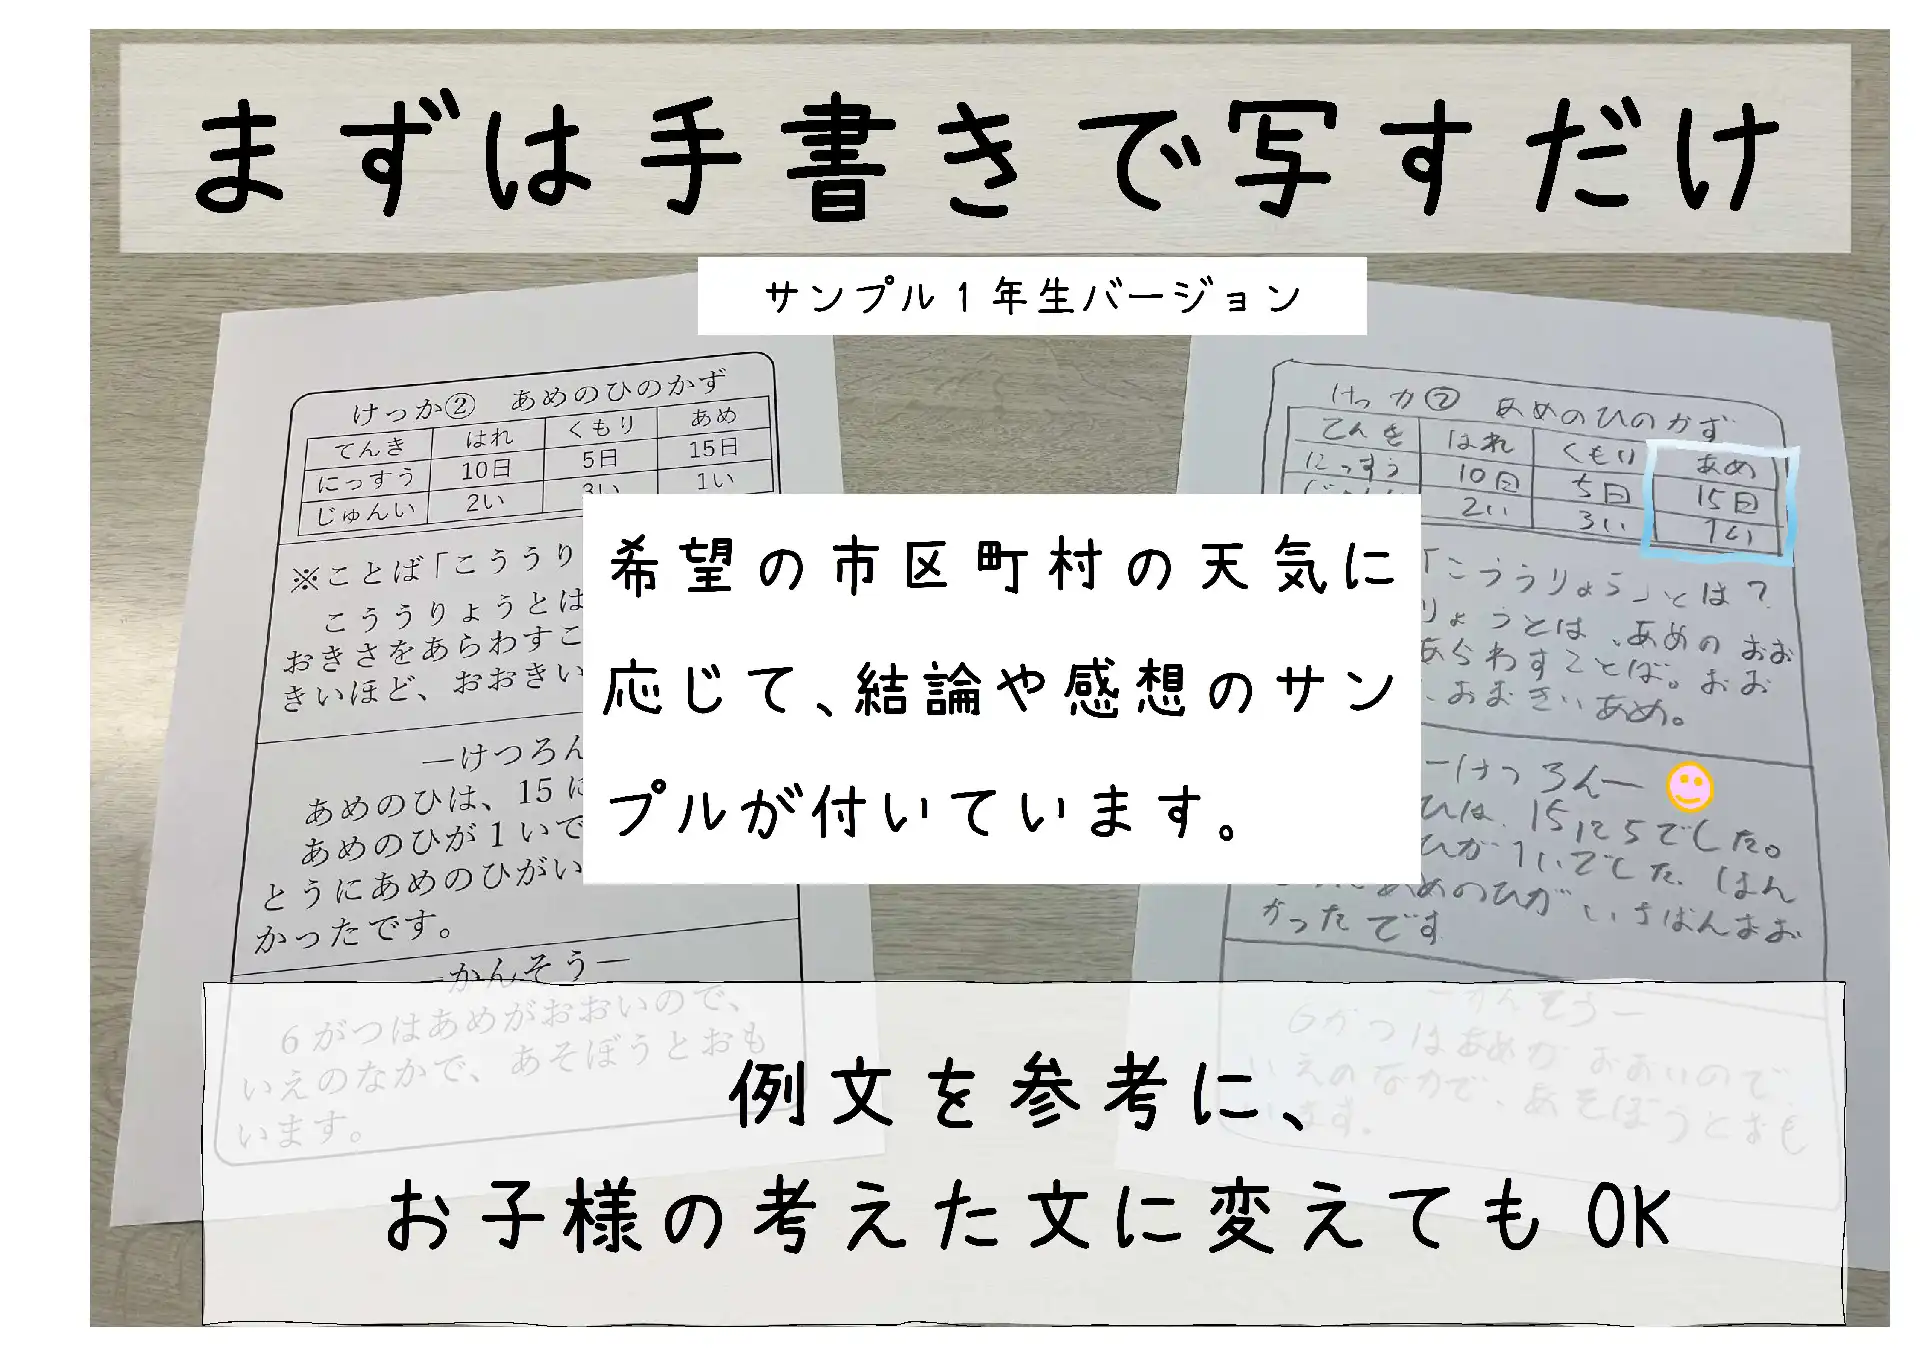 まずは手書きで写すだけ
サンプル1年生バージョン
けっか② あめのひのかず
てんき はれ くもり あめ
にっすう 10日 5日 15日
じゅんい 2い 3い 1い
※ことば「こううり
こううりょうとは
おきさをあらわすこ
きいほど、おおきい
―けつろん
あめのひは、15に
あめのひが1いで
とうにあめのひがい
かったです。
―かんそう―
6がつはあめがおおいので、
いえのなかで、あそぼうとおも
います。
けっか② あめのひのかず
てんき はれ くもり あめ
にっすう 10日 5日 15日
2い 3い 1い
「こううりょう」とは?
りょうとは、あめのおお
あらわすことば。おお
、おおきいあめ。
―けつろん―
ひは、15にちでした。
ひが1いでした。ほん
あめのひがいちばんおお
かったです
―かんそう―
6がつはあめがおおいので、
いえのなかで、あそぼうとおも
ます。
希望の市区町村の天気に
応じて、結論や感想のサン
プルが付いています。
例文を参考に、
お子様の考えた文に変えてもOK